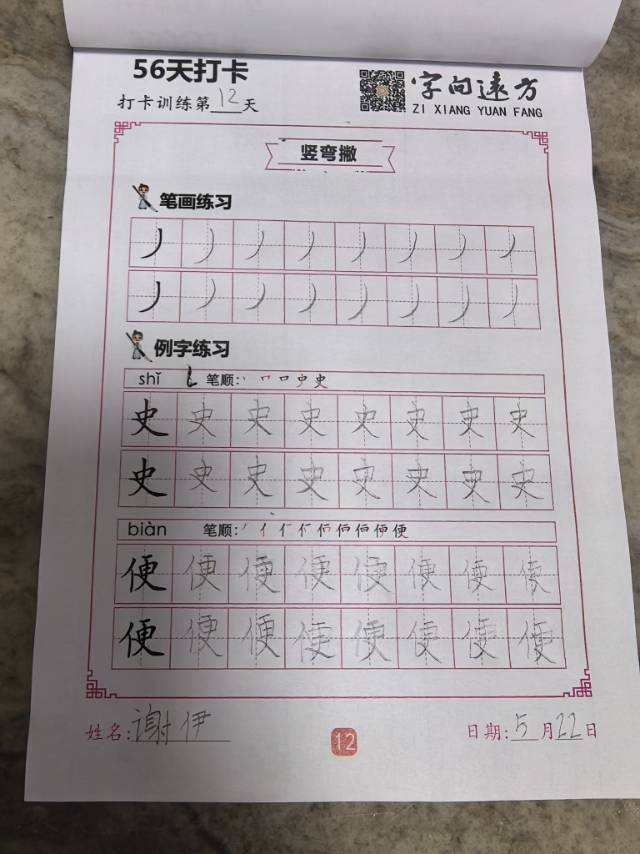 56天打卡
字向远方
打卡训练第12天
ZI XIANG YUAN FANG
竖弯撇
笔画练习
例字练习
shǐ 笔顺:
史史史史史史史史
史史史史史史史史
biàn 笔顺:
便便便便便便便便
便便便便便便便便
姓名:谢伊
12
日期:5月22日